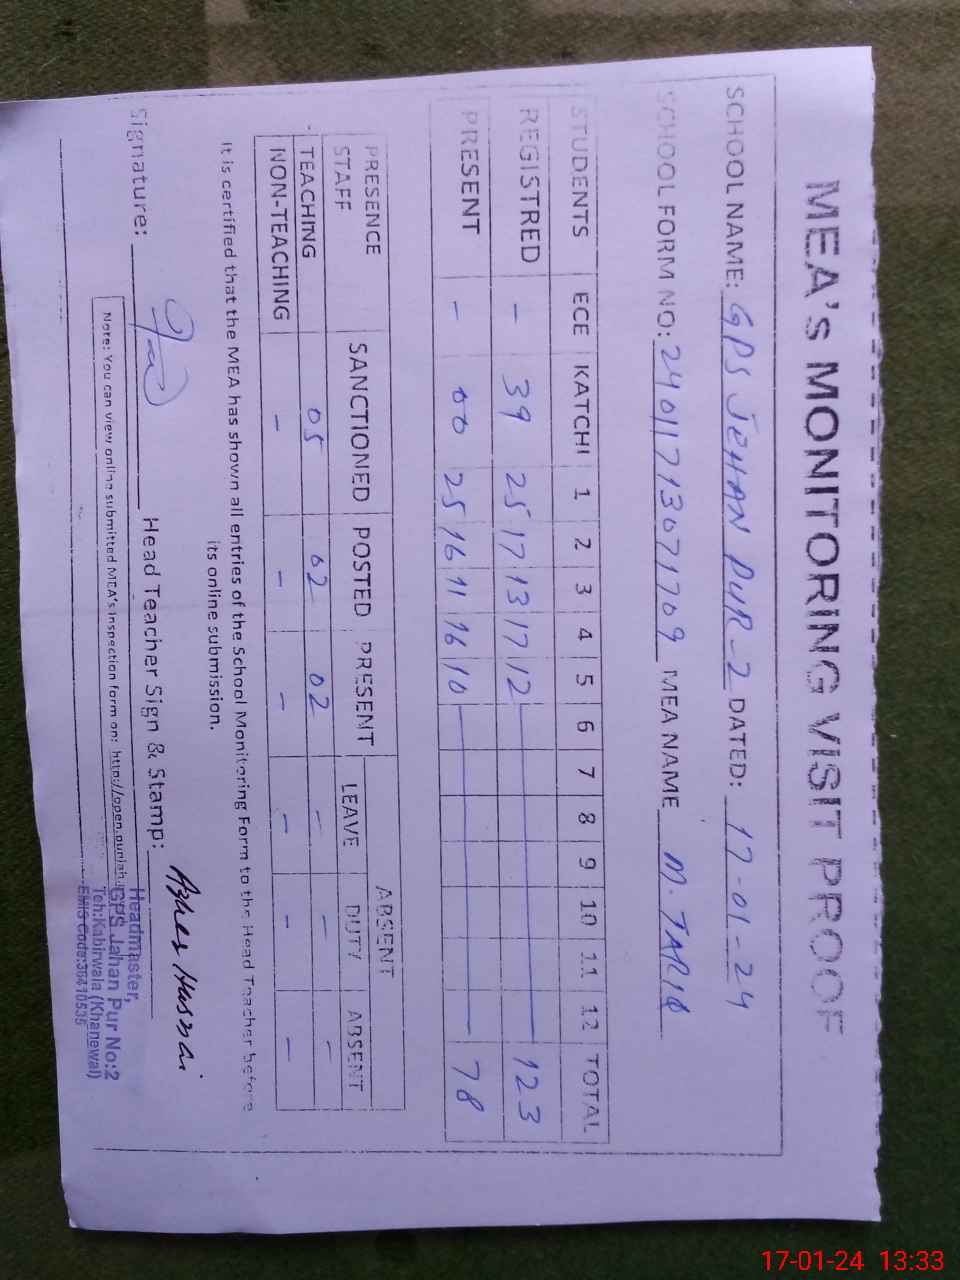 MEA'S MONITORING VISIT PROOF
SCHOOL NAME: GPS JEHAN PUR-2 DATED: 17-01-24
SCHOOL FORM NO: 24011713071709 MEA NAME M. TARIQ
STUDENTS ECE KATCHI 1 2 3 4 5 6 7 8 9 10 11 12 TOTAL
REGISTRED - 39 25 17 13 17 12 123
PRESENT - 00 25 16 11 16 10 78
PRESENCE STAFF SANCTIONED POSTED PRESENT ABSENT
LEAVE DUTY ABSENT
TEACHING 05 02 02 - - -
NON-TEACHING - - - - - -
It is certified that the MEA has shown all entries of the School Monitoring Form to the Head Teacher before
its online submission.
Signature: Head Teacher Sign & Stamp:
Headmaster,
GPS Jahan Pur No:2
Teh:Kabirwala (Khanewal)
EMIS Code:36410535
Note: You can view online submitted MEA's Inspection form on: http://open.punjab
17-01-24 13:33